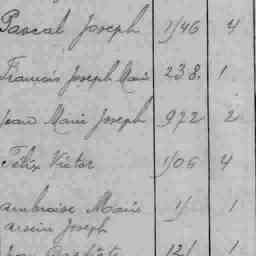 Pascal Joseph 1146 4
Francois Joseph Marie 238. 1
Jean Marie Joseph 972 2
Felix Victor 1106 4
ambroise Marie 11 1
arsein Joseph
Jean Baptiste 121 1